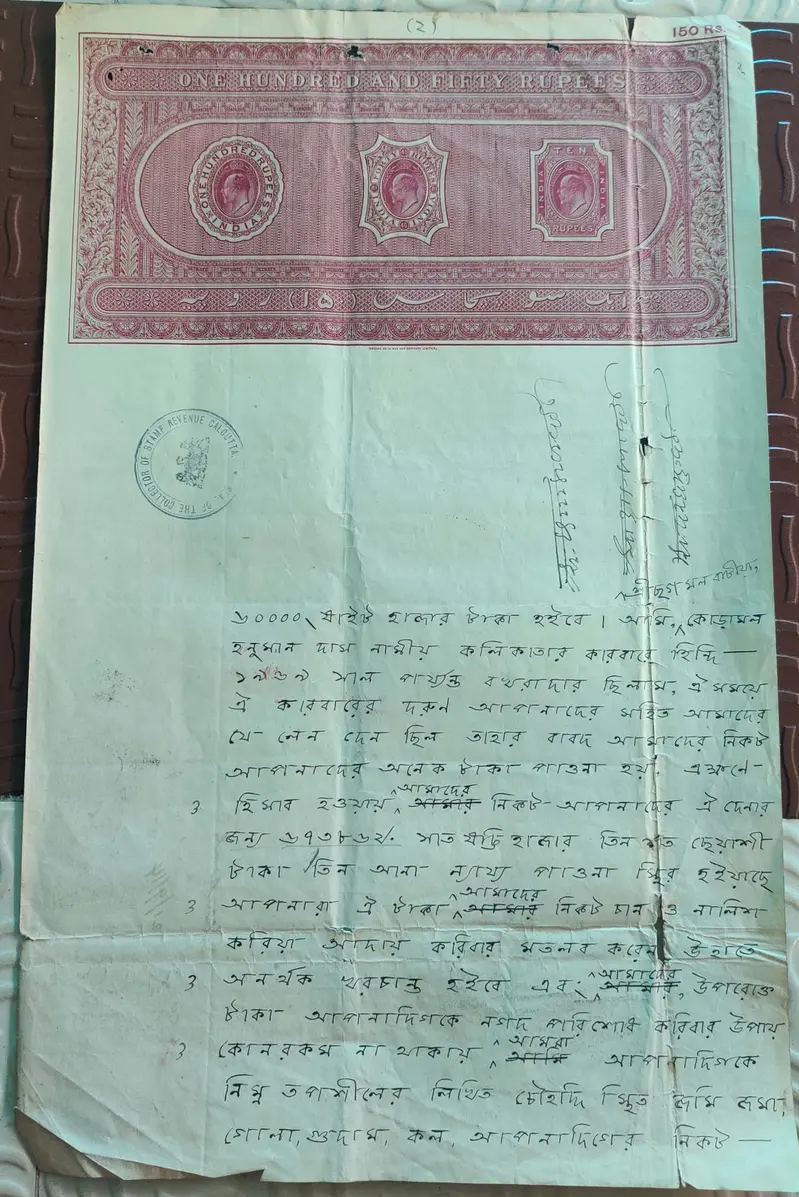 (২)
150 RS.
ONE HUNDRED AND FIFTY RUPEES
ONE HUNDRED RUPEES INDIA
FORTY RUPEES INDIA
TEN INDIA RUPEES INDIA
SEAL OF THE COLLECTOR OF STAMP REVENUE CALCUTTA
৬০০০০৲ ষাইট হাজার টাকা হইবে। আমি, কোড়ামল
হনুমান দাস নামীয় কলিকাতার কারবারে হিন্দি —
সাল পার্য্যন্ত বখরাদার ছিলাম, ঐ সময়ে
ঐ কারবারের দরুণ আপনাদের সহিত আমাদের
যে লেন দেন ছিল তাহার বাবদ আমাদের নিকট
আপনাদের অনেক টাকা পাওনা হয়। এক্ষণে
৩ হিসাব হওয়ায় ^আমাদের আমার নিকট আপনাদের ঐ দেনার
জন্য সাত ষট্টি হাজার তিন শত ছেয়াশী
টাকা তিন আনা ন্যায্য পাওনা স্থির হইয়াছে
৩ আপনারা ঐ টাকা ^আমাদের আমার নিকট চান ও নালিশ
করিয়া আদায় করিবার মতলব করেন উহাতে
৩ অনর্থক খরচান্ত হইবে এবং ^আমাদের আমার, উপরোক্ত
টাকা আপনাদিগকে নগদ পরিশোধ করিবার উপায়
৩ কোনরকম না থাকায় ^আমরা আমি আপনাদিগকে
নিম্ন তপশীলের লিখিত চৌহদ্দি স্থিত জমি জমা,
গোলা, গুদাম, কল, আপনাদিগের নিকট —